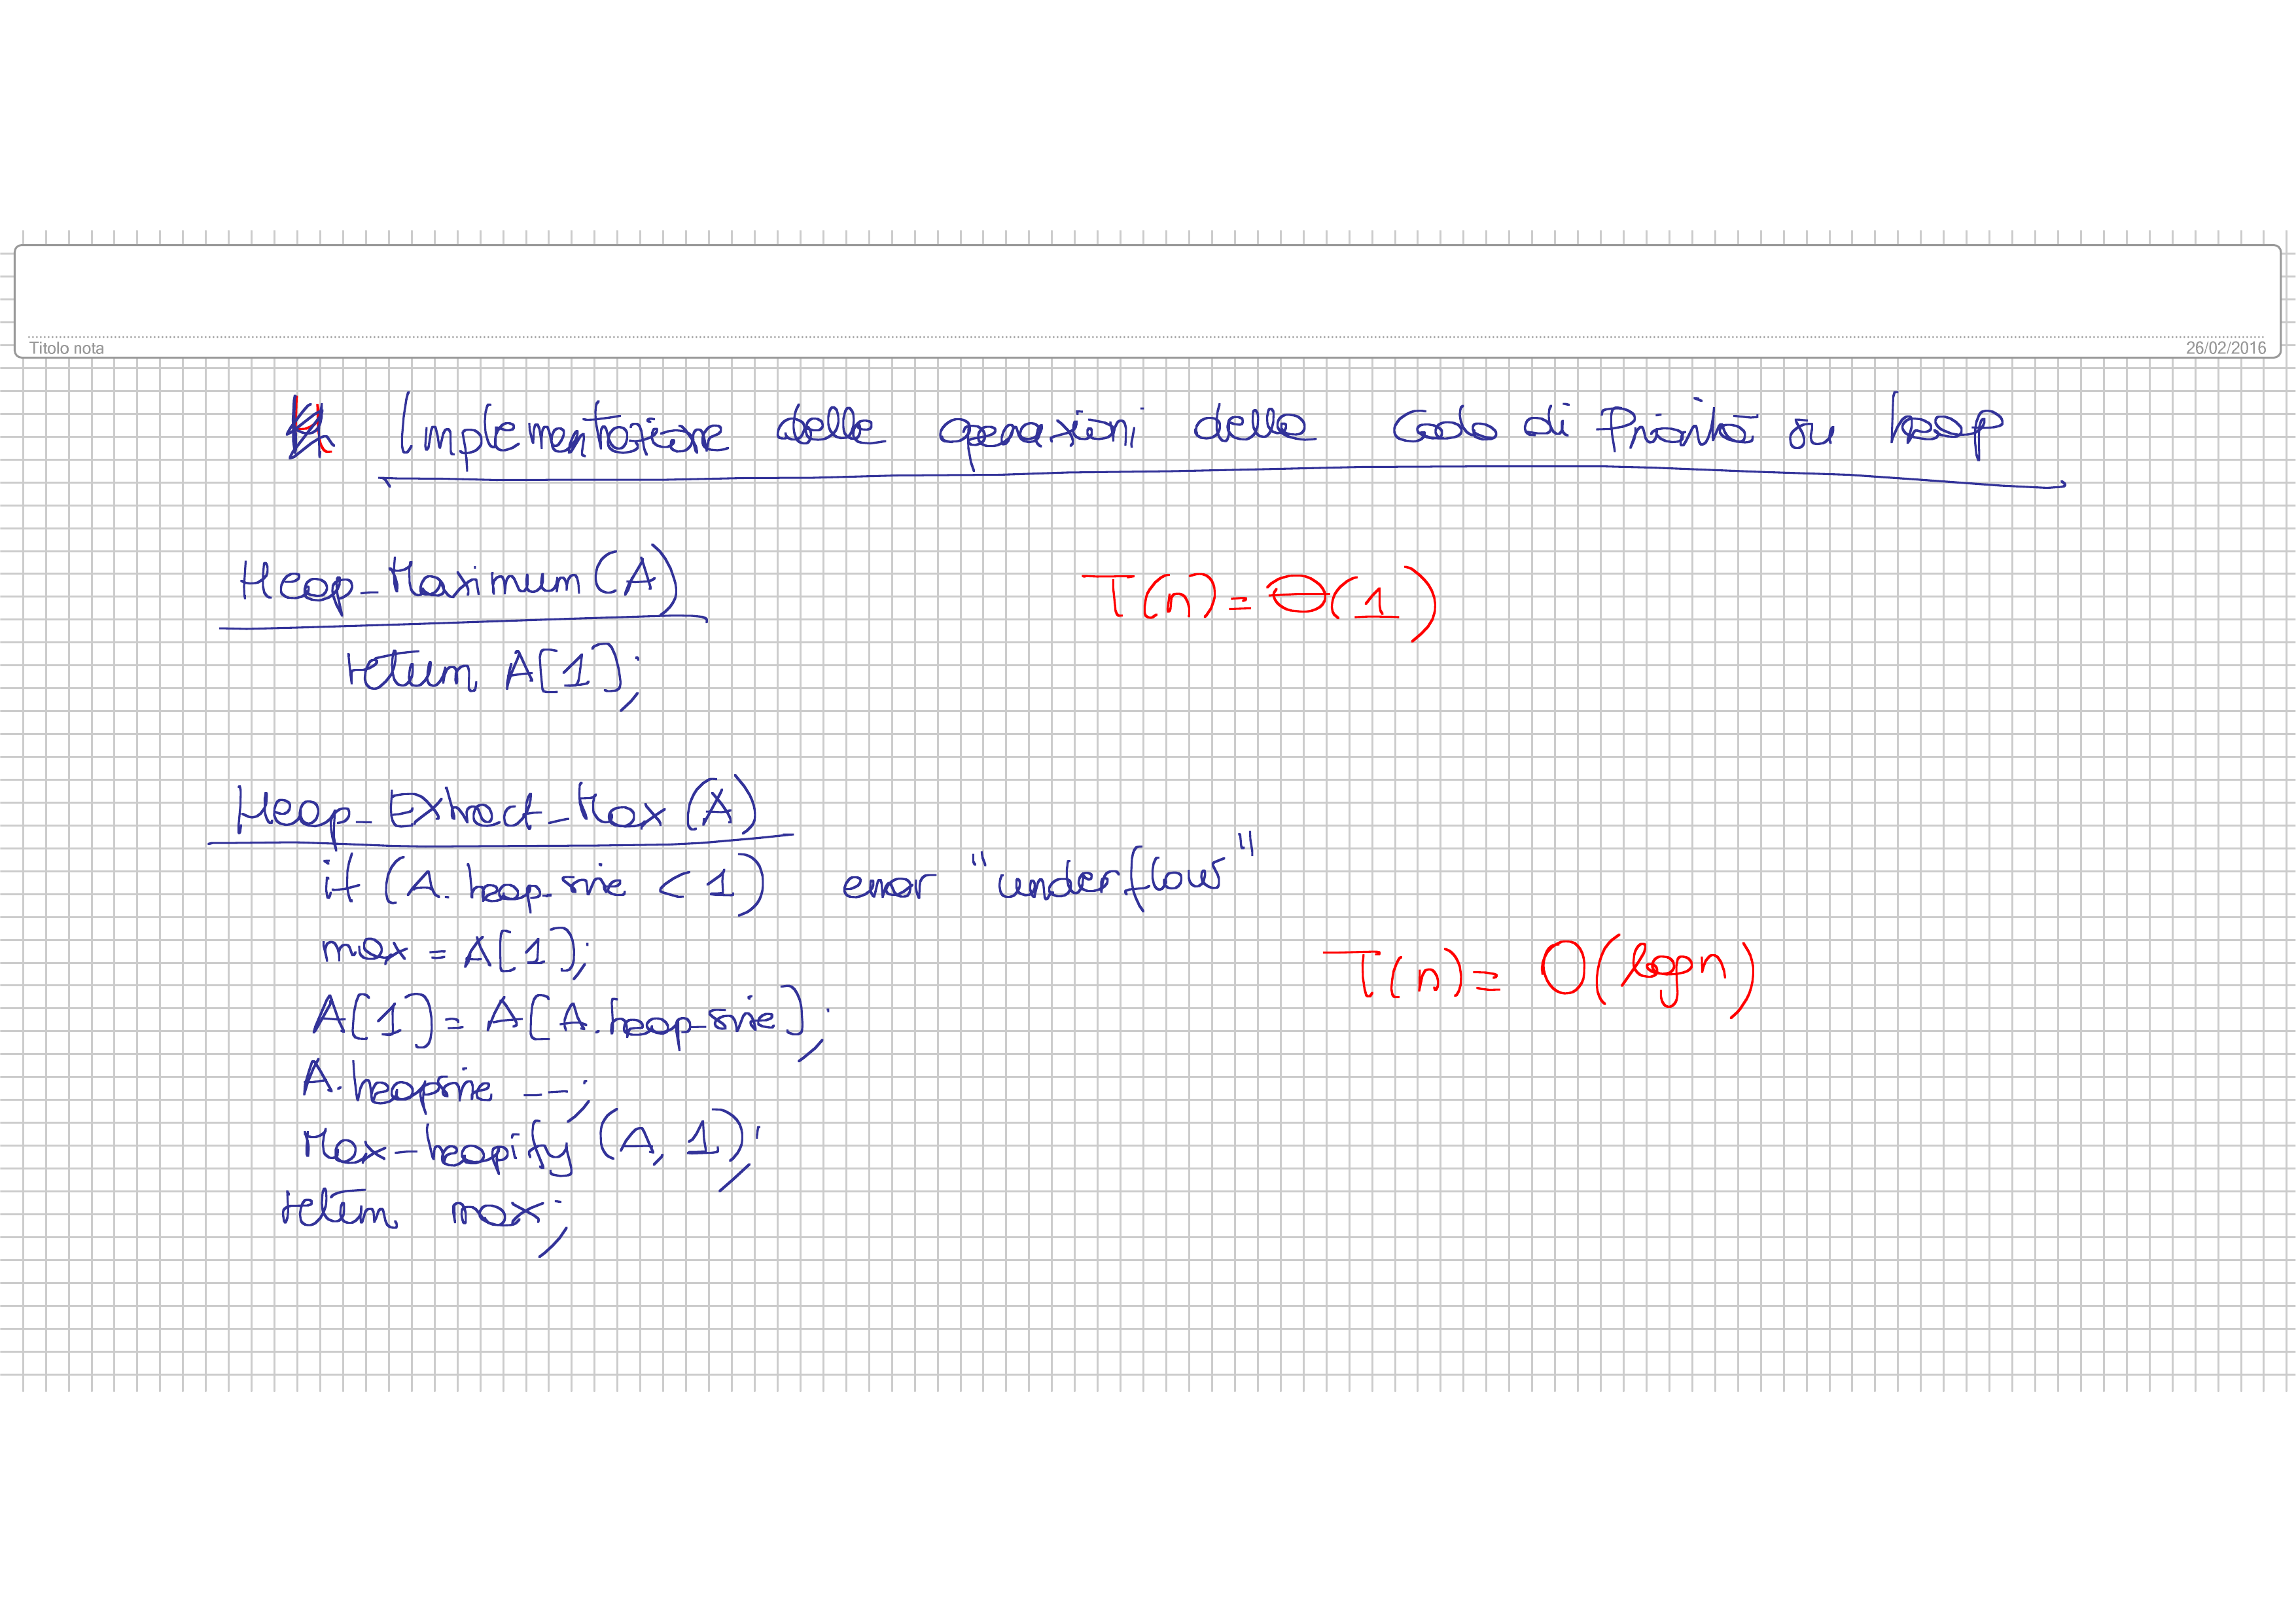 Titolo nota
26/02/2016
Implementazione delle operazioni della Coda di Priorità su heap
Heap_Maximum(A)
T(n) = Θ(1)
return A[1];
Heap_Extract_Max(A)
if (A.heap_size < 1) error "underflow"
max = A[1];
T(n) = O(log n)
A[1] = A[A.heap_size];
A.heapsize --;
Max-heapify (A, 1);
return max;